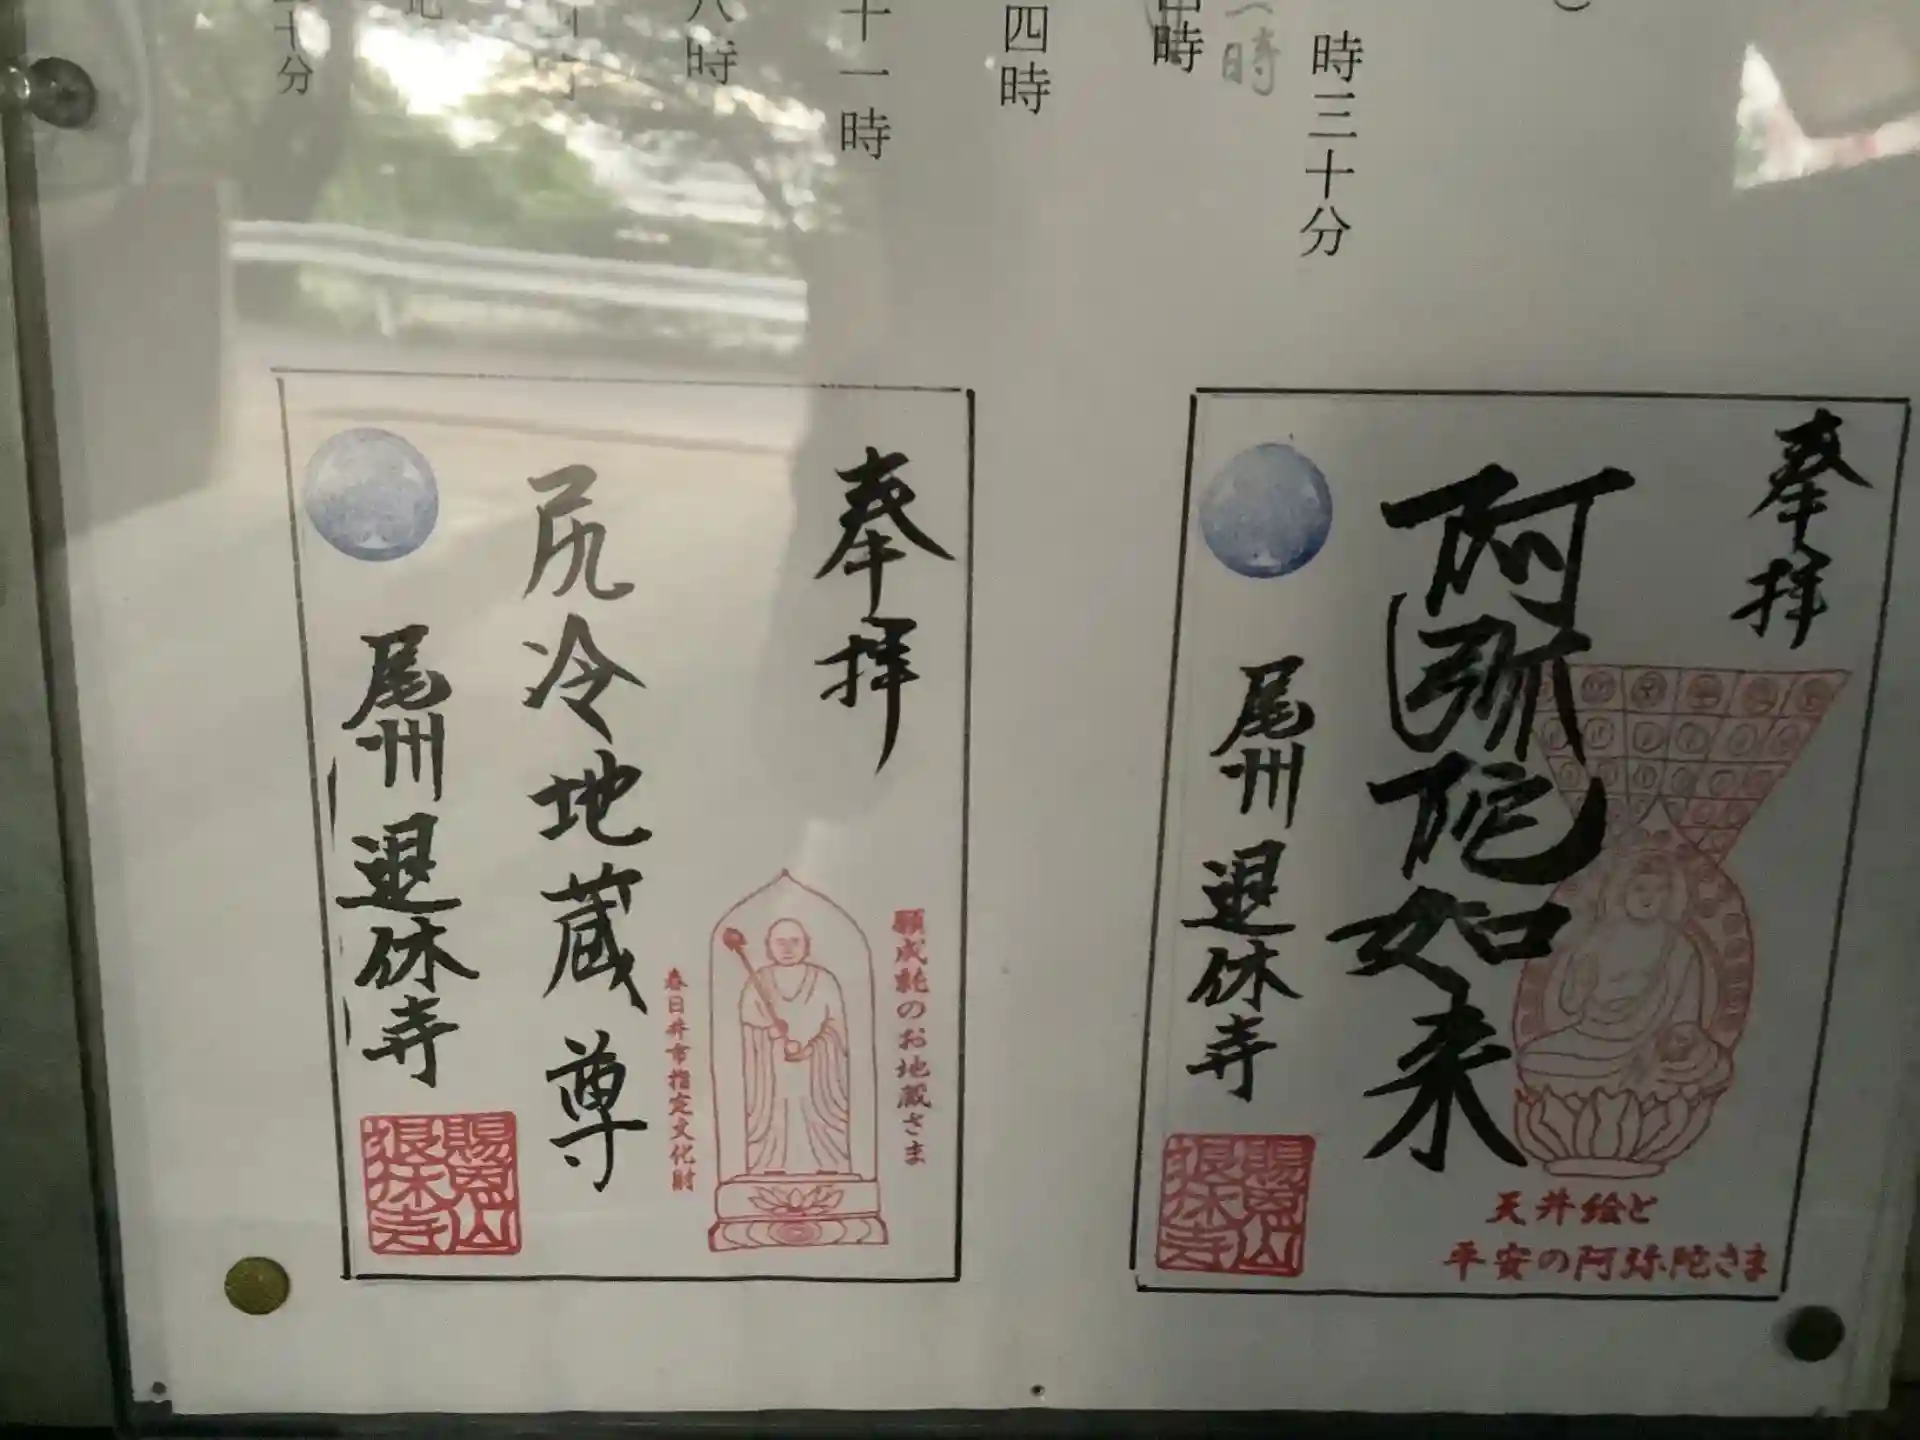 時三十分
一時
四時
十一時
八時
十分
奉拝
阿弥陀如来
尾州退休寺
賜恩山
退休寺
天井絵と
平安の阿弥陀さま
奉拝
願成就のお地蔵さま
春日井市指定文化財
尻冷地蔵尊
尾州退休寺
賜恩山
退休寺